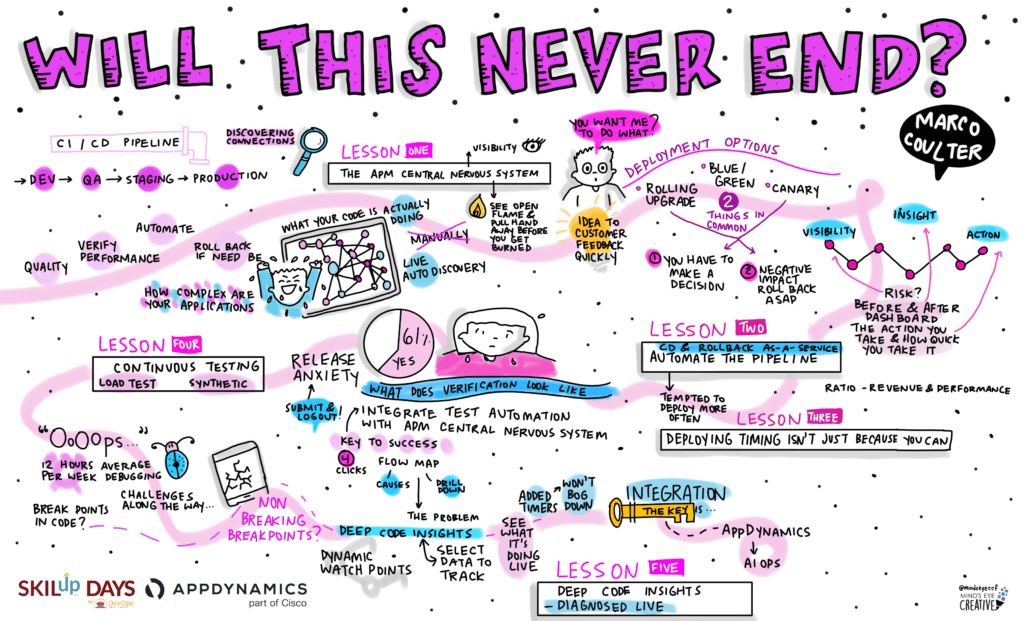 WILL THIS NEVER END?
MARCO
COULTER
CI/CD PIPELINE
→DEV → QA → STAGING → PRODUCTION
DISCOVERING
CONNECTIONS
LESSON ONE
VISIBILITY
THE APM CENTRAL NERVOUS SYSTEM
SEE OPEN
FLAME &
PULL HAND
AWAY BEFORE
YOU GET
BURNED
YOU WANT ME?
TO DO WHAT!
IDEA TO
CUSTOMER
FEEDBACK
QUICKLY
DEPLOYMENT OPTIONS
ROLLING
UPGRADE
BLUE/
GREEN
CANARY
2
THINGS IN
COMMON
1 YOU HAVE TO
MAKE A
DECISION
2 NEGATIVE
IMPACT
ROLL BACK
ASAP
VISIBILITY
INSIGHT
ACTION
RISK?
BEFORE & AFTER
DASHBOARD
THE ACTION YOU
TAKE & HOW QUICK
YOU TAKE IT
RATIO - REVENUE & PERFORMANCE
AUTOMATE
VERIFY
PERFORMANCE
QUALITY
ROLL BACK
IF NEED BE
WHAT YOUR CODE IS ACTUALLY
DOING
MANUALLY
LIVE
AUTO DISCOVERY
HOW COMPLEX ARE
YOUR APPLICATIONS
LESSON TWO
CD & ROLLBACK AS-A-SERVICE
AUTOMATE THE PIPELINE
TEMPTED TO
DEPLOY MORE
OFTEN
LESSON THREE
DEPLOYING TIMING ISN'T JUST BECAUSE YOU CAN
61%
YES
WHAT DOES VERIFICATION LOOK LIKE
RELEASE
ANXIETY
SUBMIT &
LOGOUT!
LESSON FOUR
CONTINUOUS TESTING
LOAD TEST SYNTHETIC
INTEGRATE TEST AUTOMATION
WITH APM CENTRAL NERVOUS SYSTEM
KEY TO SUCCESS
4
CLICKS
FLOW MAP
CAUSES
DRILL
DOWN
THE PROBLEM
DEEP CODE INSIGHTS
DYNAMIC
WATCH POINTS
SELECT
DATA TO
TRACK
"OoOOps..."
12 HOURS AVERAGE
PER WEEK DEBUGGING
CHALLENGES
ALONG THE WAY...
BREAK POINTS
IN CODE?
NON
BREAKING
BREAKPOINTS?
SEE
WHAT
IT'S
DOING
LIVE
ADDED
TIMERS
WON'T
BOG
DOWN
INTEGRATION
THE KEY IS...
APPDYNAMICS
AI OPS
LESSON FIVE
DEEP CODE INSIGHTS
- DIAGNOSED LIVE
SKILup DAYS
APPDYNAMICS
part of Cisco
@mindseyeccf
MIND'S EYE
CREATIVE